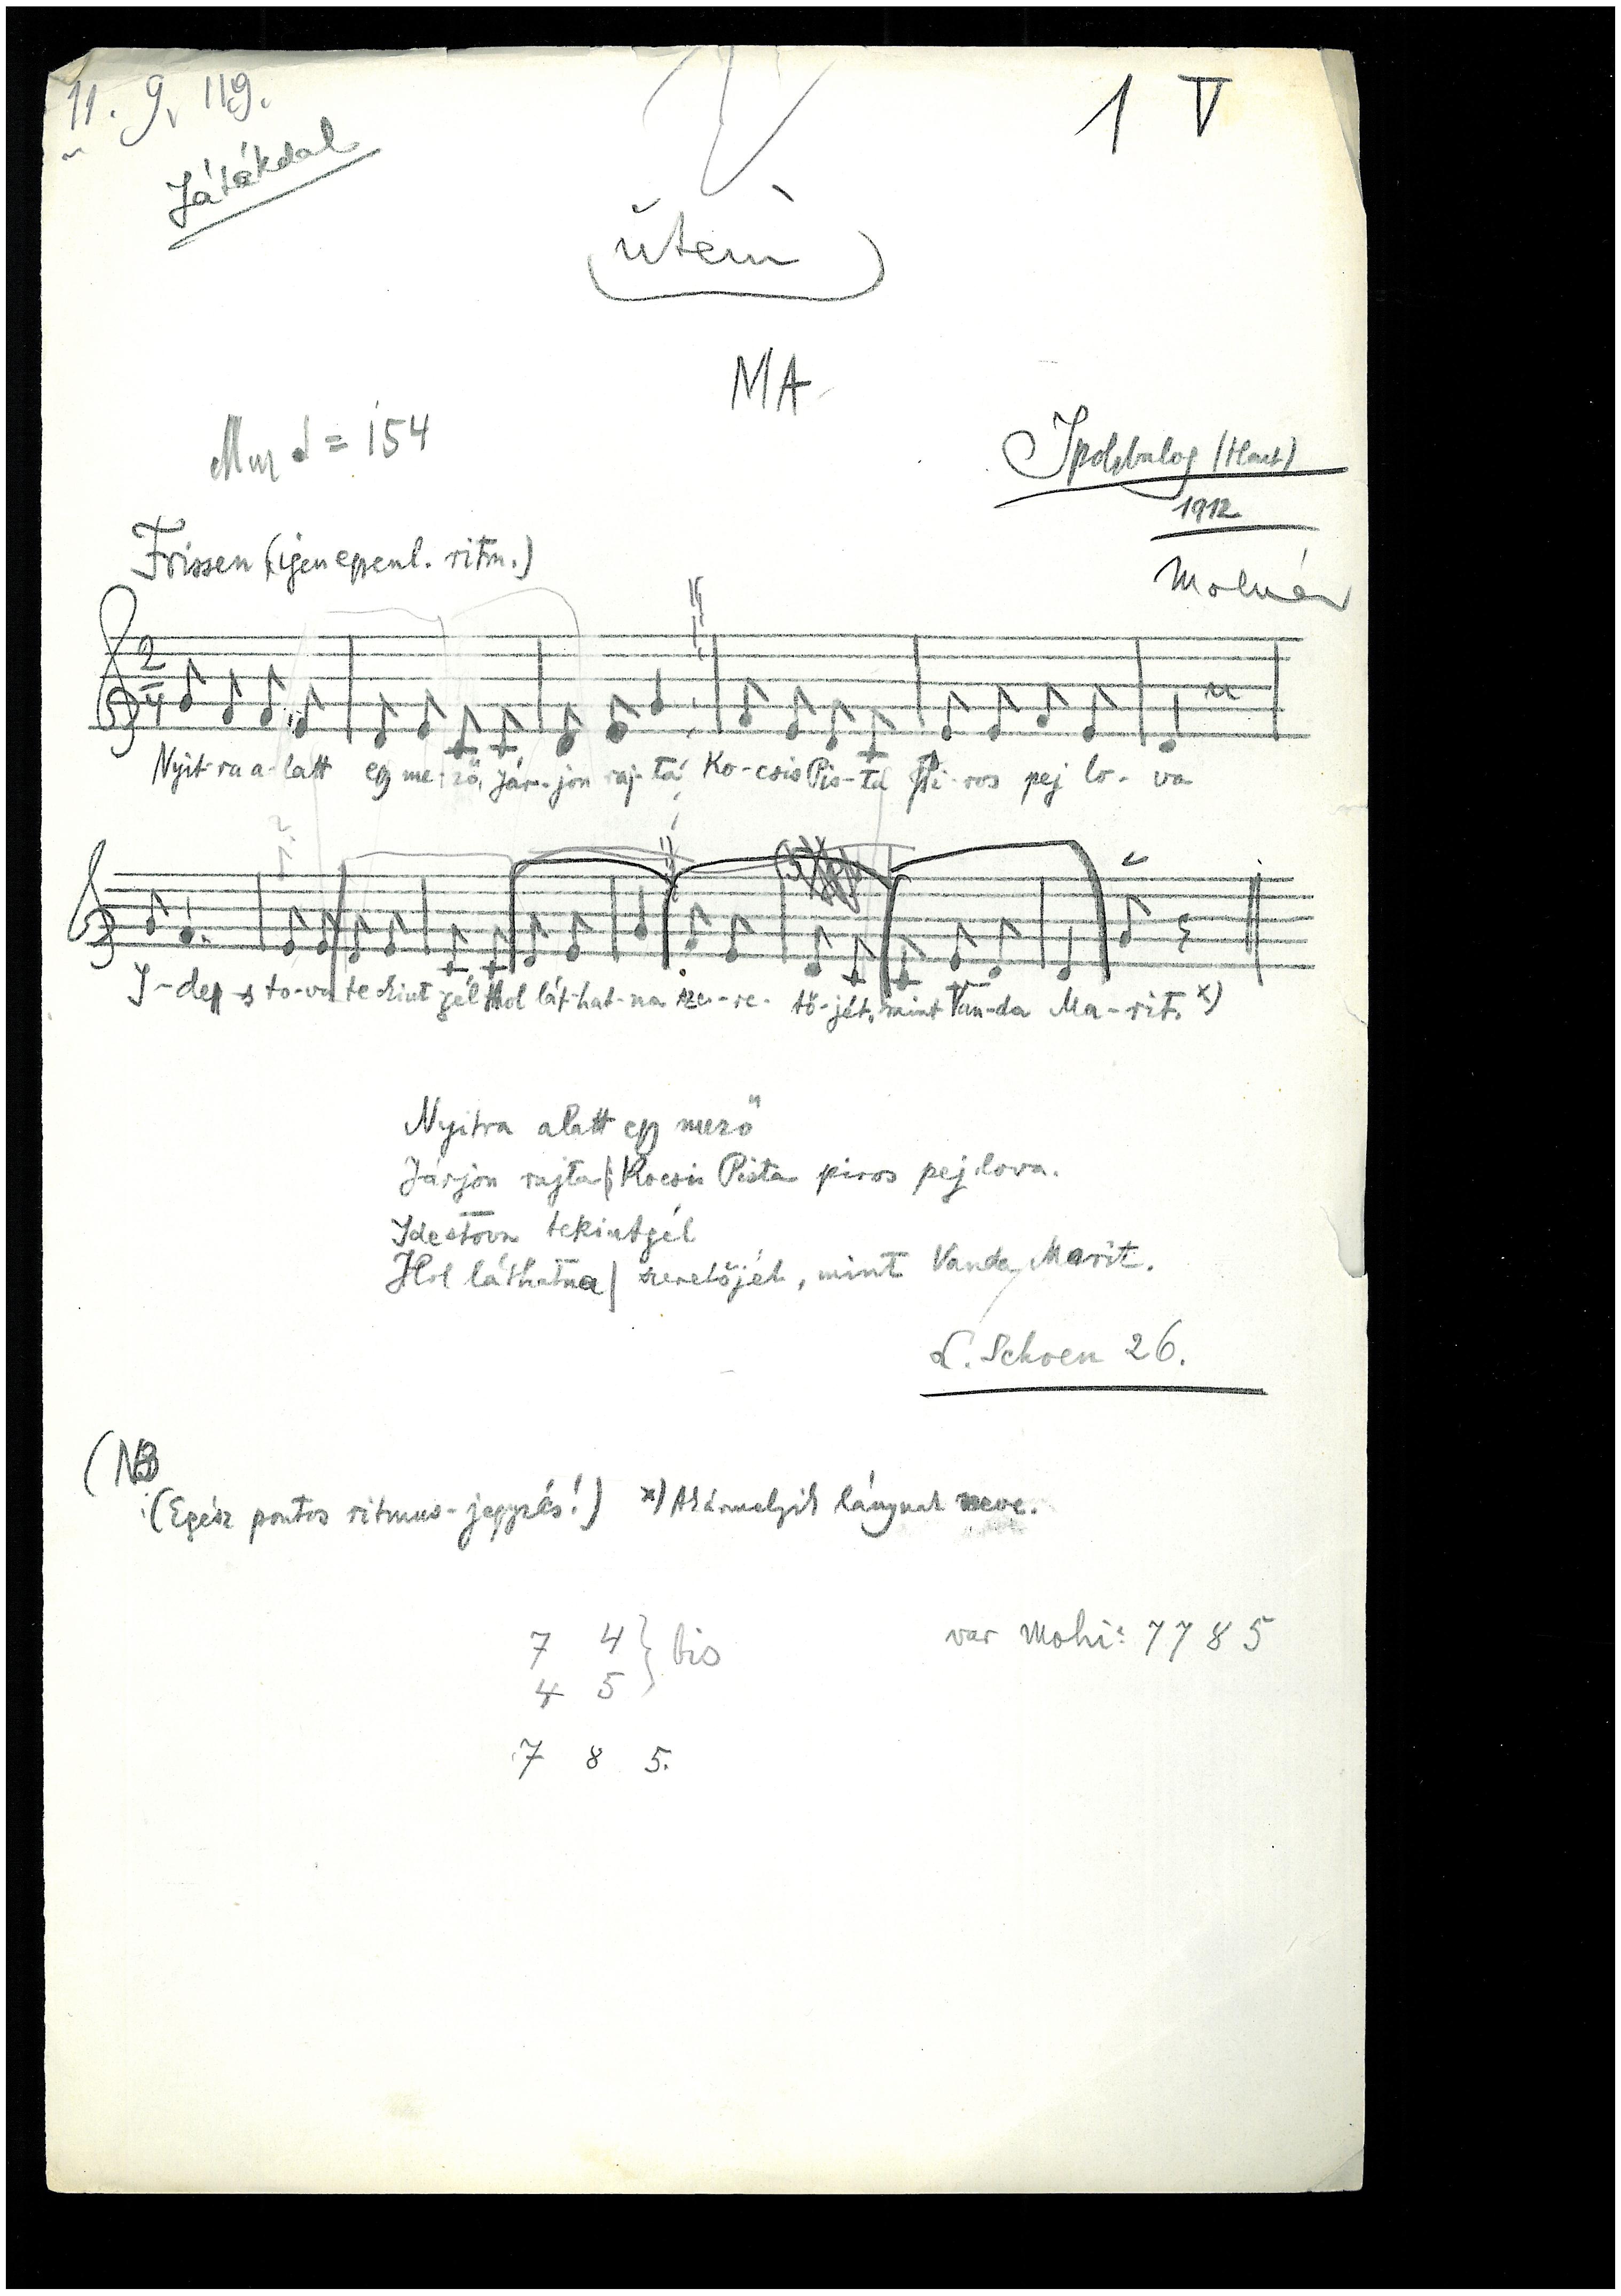 11. 9. 119.
1 V
Játékdal
ütem
MA
= 154
Ipolybalog (Hont)
1912
Frissen (igen egyenl. ritm.)
Molnár
2/4
Nyit-ra a-latt egy me-ző, Jár-jon raj-ta Ko-csis Pis-ta Pi-ros pej lo-va
I-de s to-va te kint gél Hol lát-hat-na sze-re-tő-jét, mint Van-da Ma-rit. x)
Nyitra alatt egy mező
Járjon rajta | Kocsis Pista piros pej lova.
Idestova tekintgél
Hol láthatna | szeretőjét, mint Vanda Marit.
L. Schoen 26.
(NB
(Egész pontos ritmus-jegyzés!) x) Akármelyik lánynak neve.
7 4 } bis
4 5
var Mohi: 7 7 8 5
7 8 5.